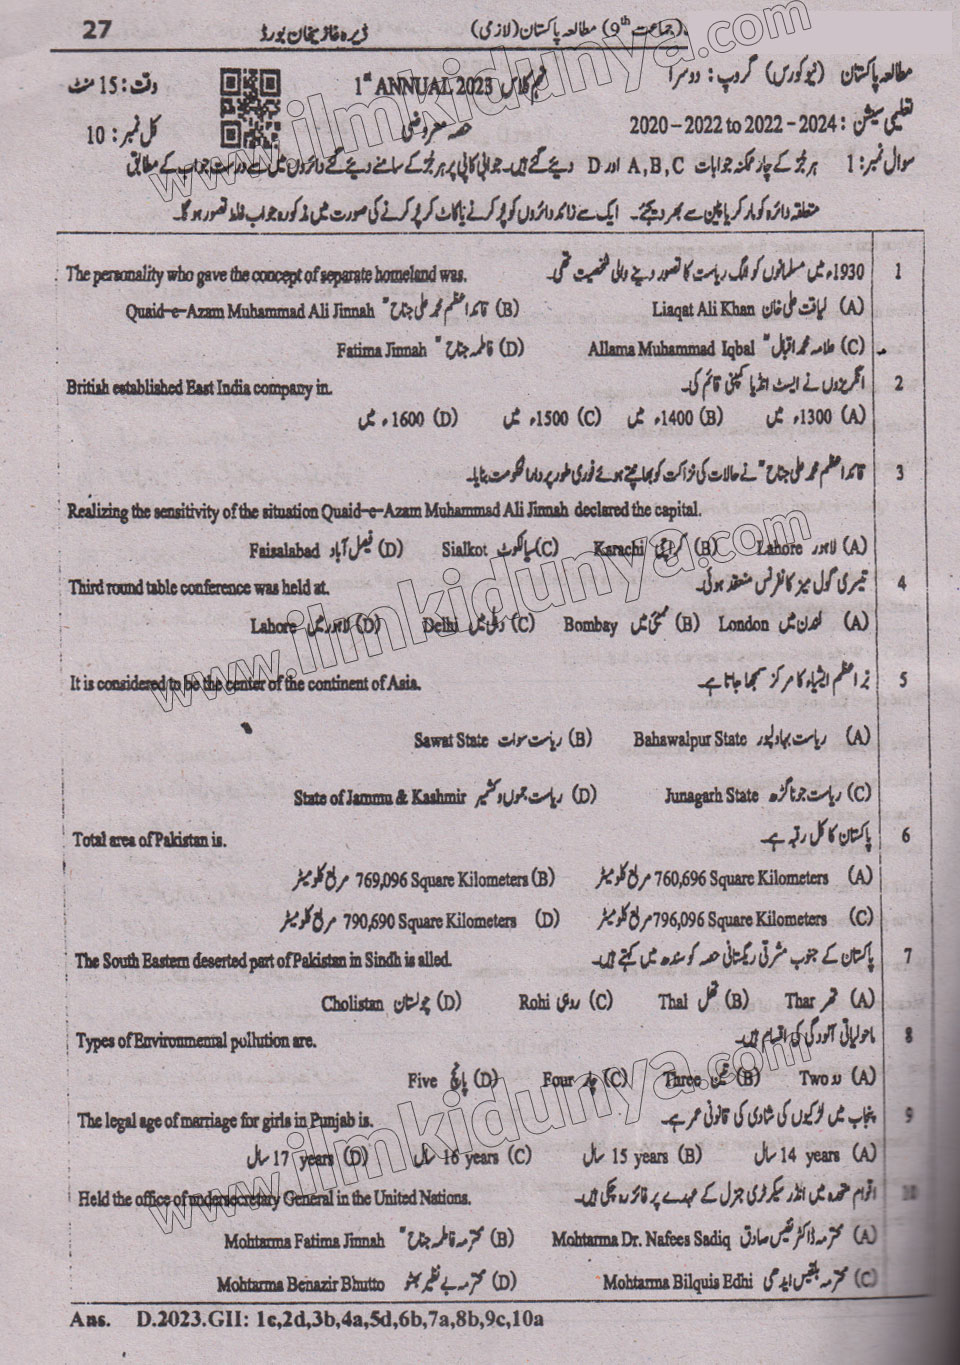 27 ڈیرہ غازیخان بورڈ (جماعت 9th) مطالعہ پاکستان (لازمی)
مطالعہ پاکستان (نیوکورس) گروپ: دوسرا 1st ANNUAL 2023 نہم کلاس وقت: 15 منٹ
تعلیمی سیشن: 2020-2022 to 2022-2024 حصہ معروضی کل نمبر: 10
سوال نمبر: 1 ہر جُز کے چار ممکنہ جوابات A,B,C اور D دیئے گئے ہیں۔ جوابی کاپی پر ہر جُز کے سامنے دیئے گئے دائروں میں سے درست جواب کے مطابق
متعلقہ دائرہ کو مارکر یا پین سے بھر دیجئے۔ ایک سے زائد دائروں کو پُر کرنے یا کاٹ کر پُر کرنے کی صورت میں مذکورہ جواب غلط تصور ہو گا۔
1 1930ء میں مسلمانوں کو الگ ریاست کا تصور دینے والی شخصیت تھی۔ The personality who gave the concept of separate homeland was.
(A) لیاقت علی خان Liaqat Ali Khan (B) قائداعظم محمد علی جناحؒ Quaid-e-Azam Muhammad Ali Jinnah
(C) علامہ محمد اقبالؒ Allama Muhammad Iqbal (D) فاطمہ جناحؒ Fatima Jinnah
2 انگریزوں نے ایسٹ انڈیا کمپنی قائم کی۔ British established East India company in.
(A) 1300ء میں (B) 1400ء میں (C) 1500ء میں (D) 1600ء میں
3 قائداعظم محمد علی جناحؒ نے حالات کی نزاکت کو بھانپتے ہوئے فوری طور پر دارالحکومت بنایا۔
Realizing the sensitivity of the situation Quaid-e-Azam Muhammad Ali Jinnah declared the capital.
(A) لاہور Lahore (B) کراچی Karachi (C) سیالکوٹ Sialkot (D) فیصل آباد Faisalabad
4 تیسری گول میز کانفرنس منعقد ہوئی۔ Third round table conference was held at.
(A) لندن میں London (B) بمبئی میں Bombay (C) دہلی میں Delhi (D) لاہور میں Lahore
5 بَرِّ اعظم ایشیاء کا مرکز سمجھا جاتا ہے۔ It is considered to be the center of the continent of Asia.
(A) ریاست بہاولپور Bahawalpur State (B) ریاست سوات Sawat State
(C) ریاست جوناگڑھ Junagarh State (D) ریاست جموں و کشمیر State of Jammu & Kashmir
6 پاکستان کا کل رقبہ ہے۔ Total area of Pakistan is.
(A) 760,696 Square Kilometers مربع کلومیٹر (B) 769,096 Square Kilometers مربع کلومیٹر
(C) 796,096 Square Kilometers مربع کلومیٹر (D) 790,690 Square Kilometers مربع کلومیٹر
7 پاکستان کے جنوب مشرقی ریگستانی حصہ کو سندھ میں کہتے ہیں۔ The South Eastern deserted part of Pakistan in Sindh is alled.
(A) تھر Thar (B) تھل Thal (C) روہی Rohi (D) چولستان Cholistan
8 ماحولیاتی آلودگی کی اقسام ہیں۔ Types of Environmental pollution are.
(A) دو Two (B) تین Three (C) چار Four (D) پانچ Five
9 پنجاب میں لڑکیوں کی شادی کی قانونی عمر ہے۔ The legal age of marriage for girls in Punjab is.
(A) 14 years سال (B) 15 years سال (C) 16 years سال (D) 17 years سال
10 اقوام متحدہ میں انڈر سیکرٹری جنرل کے عہدے پر فائز رہ چکی ہیں۔ Held the office of undersecretary General in the United Nations.
(A) محترمہ ڈاکٹر نفیس صادق Mohtarma Dr. Nafees Sadiq (B) محترمہ فاطمہ جناحؒ Mohtarma Fatima Jinnah
(C) محترمہ بلقیس ایدھی Mohtarma Bilquis Edhi (D) محترمہ بے نظیر بھٹو Mohtarma Benazir Bhutto
Ans. D.2023.GII: 1c,2d,3b,4a,5d,6b,7a,8b,9c,10a
www.ilmkidunya.com
www.ilmkidunya.com
www.ilmkidunya.com